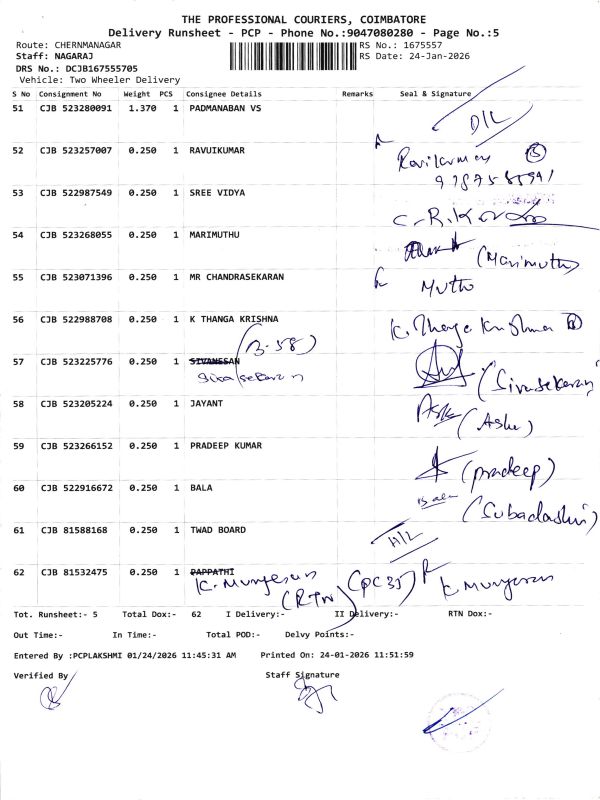 THE PROFESSIONAL COURIERS, COIMBATORE
Delivery Runsheet - PCP - Phone No.:9047080280 - Page No.:5
Route: CHERNMANAGAR RS No.: 1675557
Staff: NAGARAJ RS Date: 24-Jan-2026
DRS No.: DCJB167555705
Vehicle: Two Wheeler Delivery
S No Consignment No Weight PCS Consignee Details Remarks Seal & Signature
51 CJB 523280091 1.370 1 PADMANABAN VS D/L
52 CJB 523257007 0.250 1 RAVUIKUMAR Ravikumar
53 CJB 522987549 0.250 1 SREE VIDYA
54 CJB 523268055 0.250 1 MARIMUTHU (Marimuthu)
55 CJB 523071396 0.250 1 MR CHANDRASEKARAN Muthu
56 CJB 522988708 0.250 1 K THANGA KRISHNA K. Thanga Krishna
(3.58)
57 CJB 523225776 0.250 1 SIVANESAN (Sivasekaran)
Sivasekaran
58 CJB 523205224 0.250 1 JAYANT (Ashu)
59 CJB 523266152 0.250 1 PRADEEP KUMAR (pradeep)
60 CJB 522916672 0.250 1 BALA Bala
61 CJB 81588168 0.250 1 TWAD BOARD H/L
62 CJB 81532475 0.250 1 PAPPATHI
K. Murugesan (RTN) (PC35) K. Murugesan
Tot. Runsheet:- 5 Total Dox:- 62 I Delivery:- II Delivery:- RTN Dox:-
Out Time:- In Time:- Total POD:- Delvy Points:-
Entered By :PCPLAKSHMI 01/24/2026 11:45:31 AM Printed On: 24-01-2026 11:51:59
Verified By Staff Signature